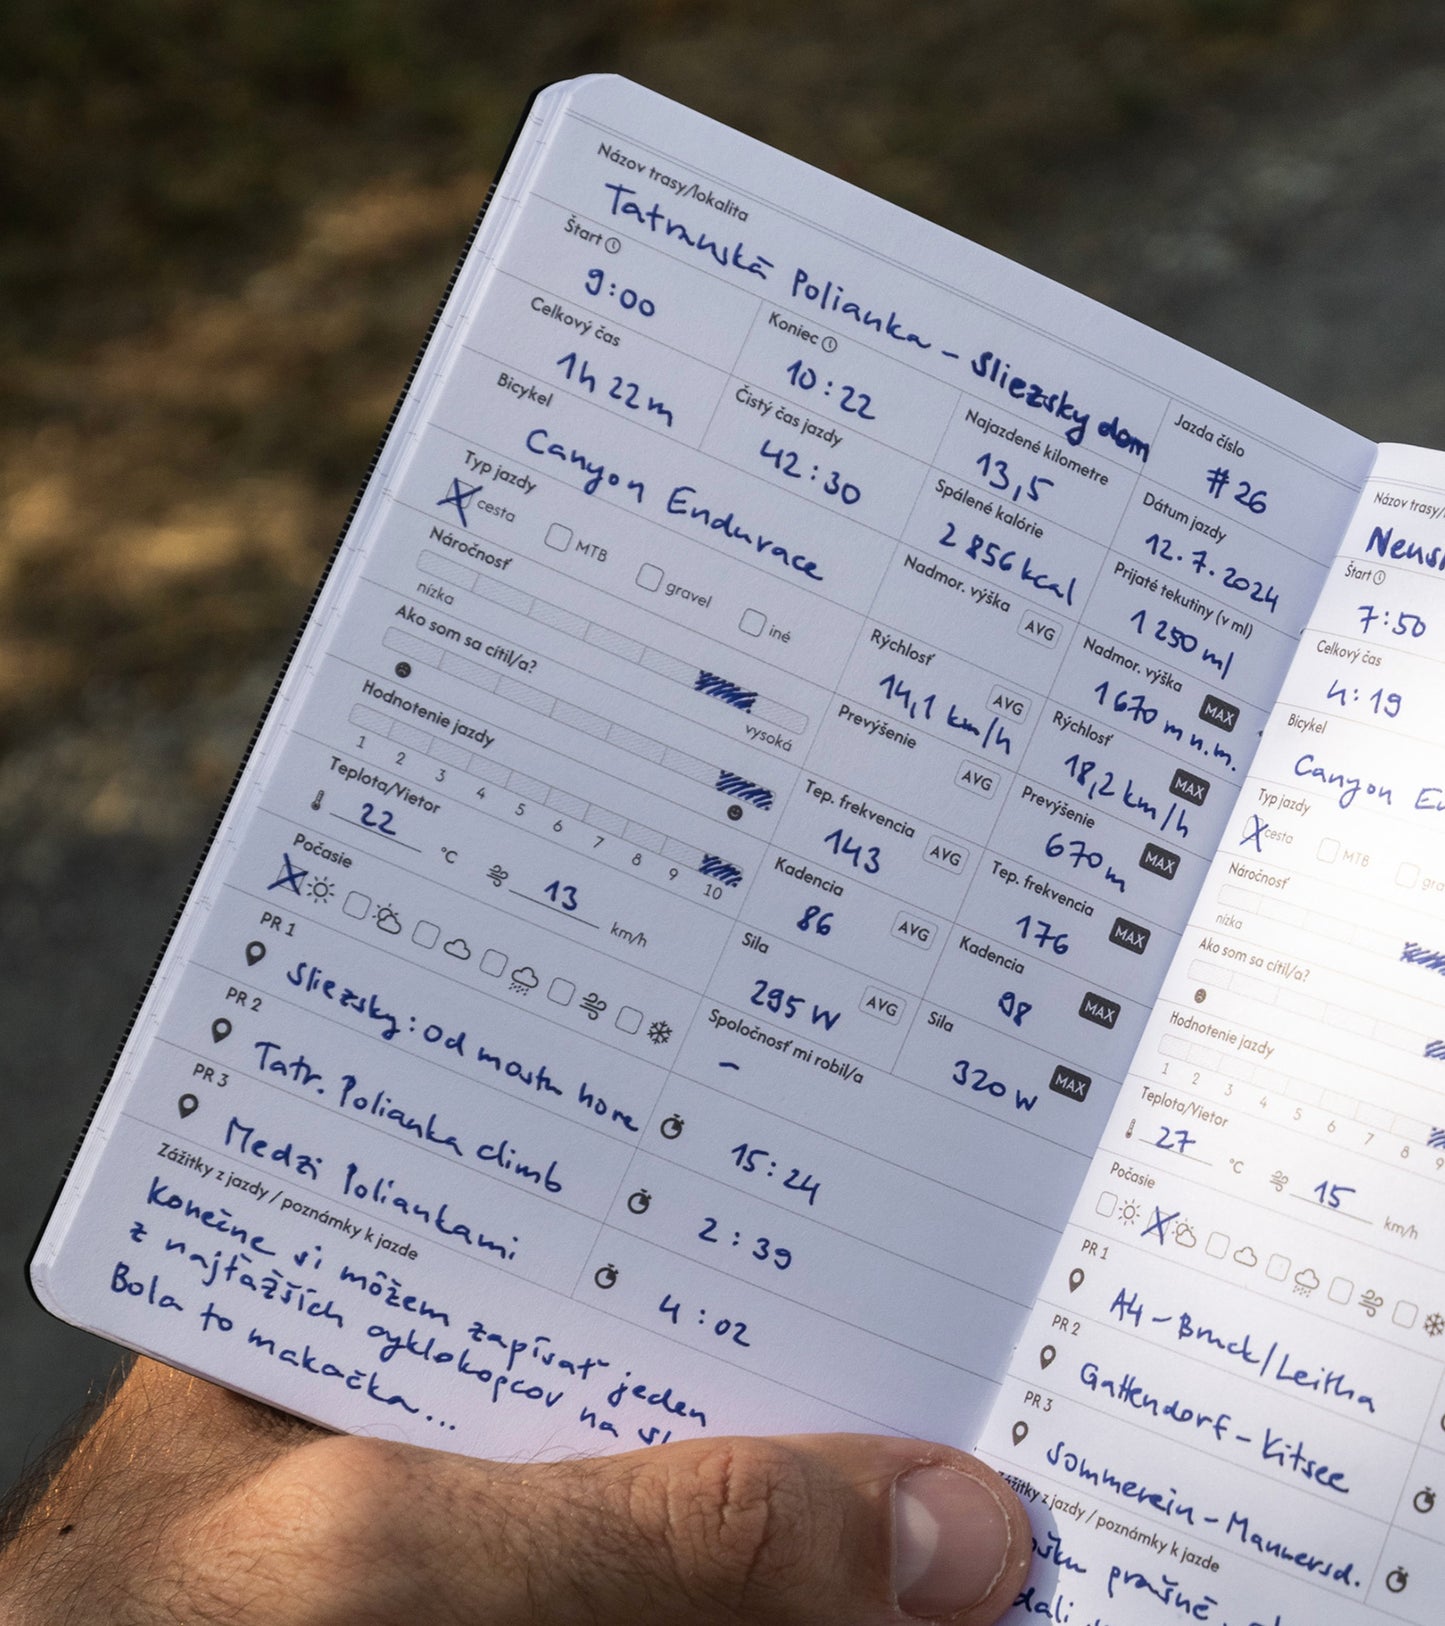 Názov trasy/lokalita
Tatranská Polianka - Sliezsky dom
Štart
9:00
Koniec
10:22
Najazdené kilometre
13,5
Jazda číslo
#26
Celkový čas
1h 22m
Čistý čas jazdy
42:30
Spálené kalórie
2 856 kcal
Dátum jazdy
12.7.2024
Bicykel
Canyon Endurace
Nadmor. výška AVG
Prijaté tekutiny (v ml)
1 250 ml
Typ jazdy
cesta MTB gravel iné
Rýchlosť AVG
14,1 km/h
Nadmor. výška MAX
1670 m n.m.
Náročnosť
nízka vysoká
Prevýšenie AVG
Rýchlosť MAX
18,2 km/h
Ako som sa cítil/a?
Tep. frekvencia AVG
143
Prevýšenie MAX
670 m
Hodnotenie jazdy
1 2 3 4 5 6 7 8 9 10
Kadencia AVG
86
Tep. frekvencia MAX
176
Teplota/Vietor
22 °C 13 km/h
Sila AVG
295 W
Kadencia MAX
98
Počasie
Spoločnosť mi robil/a
-
Sila MAX
320 W
PR 1
Sliezsky: Od mostu hore 15:24
PR 2
Tatr. Polianka climb 2:39
PR 3
Medzi Poliankami 4:02
Zážitky z jazdy / poznámky k jazde
Konečne si môžem zapísať jeden
z najťažších cyklokopcov na
Bola to makačka...
Názov trasy/
Štart
7:50
Celkový čas
4:19
Bicykel
Canyon
Typ jazdy
cesta MTB
Náročnosť
nízka
Ako som sa cítil/a?
Hodnotenie jazdy
1 2 3 4 5 6 7 8 9
Teplota/Vietor
27 °C 15 km/h
Počasie
PR 1
A4 - Bruck/Leitha
PR 2
Gattendorf - Kitsee
PR 3
Sommerein - Mannersd.
Zážitky z jazdy / poznámky k jazde